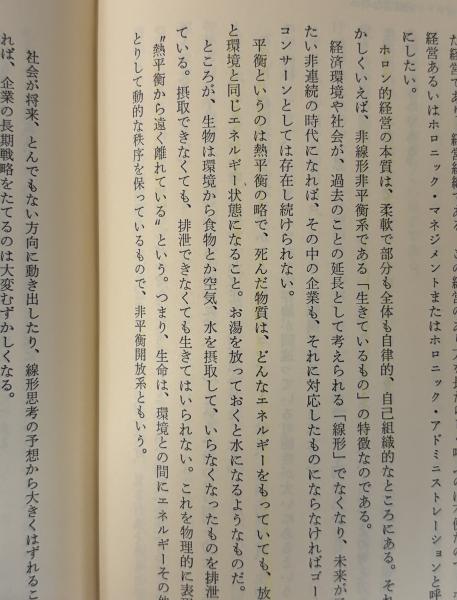 た経営であり、経営組織である。この経営のあり方を
経営あるいはホロニック・マネジメントまたはホロニック・アドミニストレーションと呼
にしたい。
ホロン的経営の本質は、柔軟で部分も全体も自律的、自己組織的なところにある。それ
かしくいえば、非線形非平衡系である「生きているもの」の特徴なのである。
経済環境や社会が、過去のことの延長として考えられる「線形」でなくなり、未来が
たい非連続の時代になれば、その中の企業も、それに対応したものにならなければゴー
コンサーンとしては存在し続けられない。
平衡というのは熱平衡の略で、死んだ物質は、どんなエネルギーをもっていても、放
と環境と同じエネルギー状態になること。お湯を放っておくと水になるようなものだ。
ところが、生物は環境から食物とか空気、水を摂取して、いらなくなったものを排泄
ている。摂取できなくても、排泄できなくても生きてはいられない。これを物理的に表
〝熱平衡から遠く離れている〟という。つまり、生命は、環境との間にエネルギーその他
とりして動的な秩序を保っているもので、非平衡開放系ともいう。
社会が将来、とんでもない方向に動き出したり、線形思考の予想から大きくはずれるこ
れば、企業の長期戦略をたてるのは大変むずかしくなる。